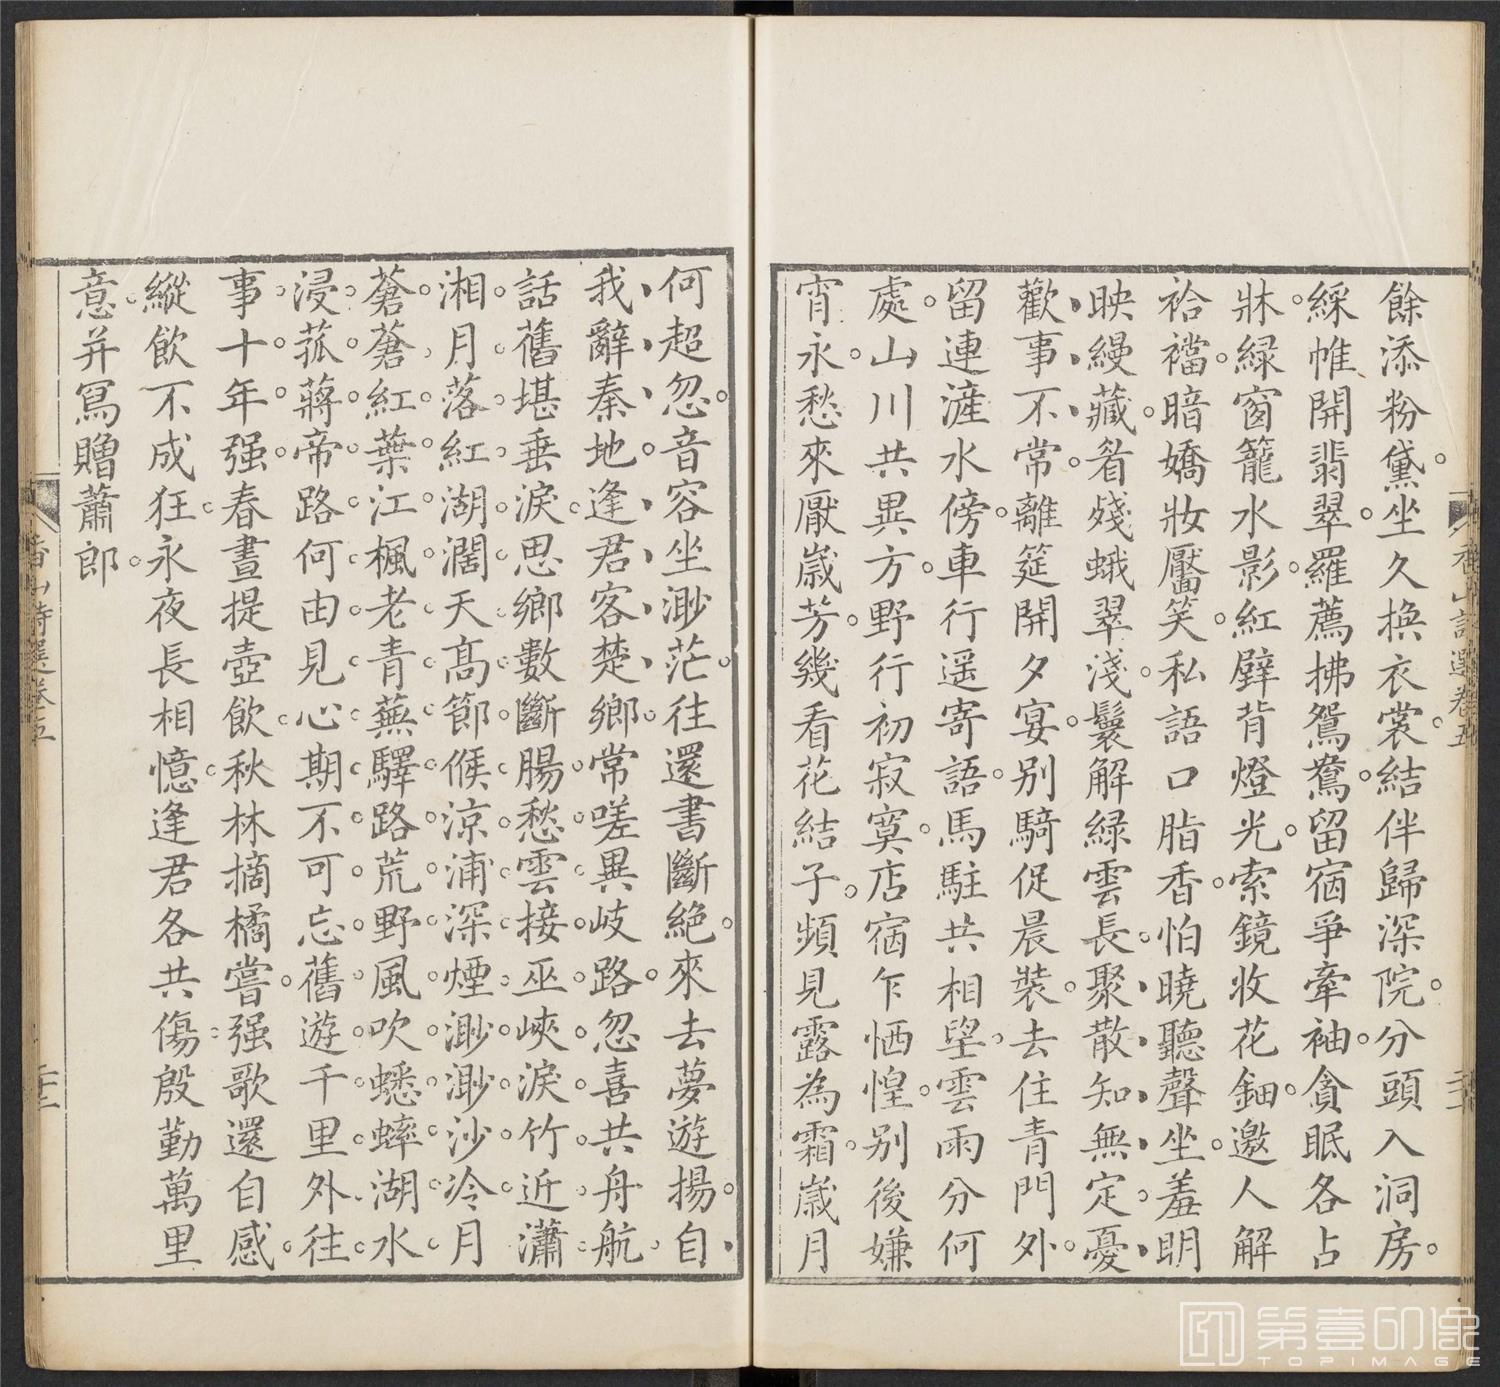 餘添粉黛坐久換衣裳結伴歸深院分頭入洞房
綵帷開翡翠羅薦拂鴛鴦留宿爭牽袖貪眠各占
牀緑窗籠水影紅壁背燈光索鏡收花鈿邀人解
袷襠暗嬌妝靨笑私語口脂香怕曉聽聲坐羞明
映縵藏眉殘蛾翠淺鬟解緑雲長聚散知無定憂
歡事不常離筵開夕宴别騎促晨裝去住青門外
留連滻水傍車行遥寄語馬駐共相望雲雨分何
處山川共異方野行初寂寞店宿乍恓惶别後嫌
宵永愁來厭嵗芳幾看花結子頻見露為霜嵗月
何超忽音容坐渺茫往還書斷絶來去夢遊揚自
我辭秦地逢君客楚鄉常嗟異岐路忽喜共舟航
話舊堪垂淚思鄉數斷腸愁雲接巫峽淚竹近瀟
湘月落紅湖濶天髙節候涼浦深煙渺渺沙冷月
蒼蒼紅葉江楓老青蕪驛路荒野風吹蟋蟀湖水
浸菰蔣帝路何由見心期不可忘舊遊千里外往
事十年强春晝提壺飲秋林摘橘嘗强歌還自感
縱飲不成狂永夜長相憶逢君各共傷殷勤萬里
意并寫贈蕭郎
香山詩選卷五
香山詩選卷五
第壹印像
TOPIMAGE